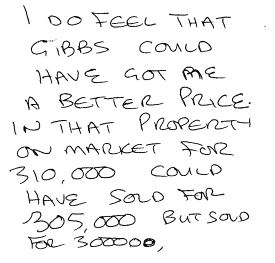 I DO FEEL THAT
GIBBS COULD
HAVE GOT ME
A BETTER PRICE.
IN THAT PROPERTY
ON MARKET FOR
310,000 COULD
HAVE SOLD FOR
305,000 BUT SOLD
FOR 300000,